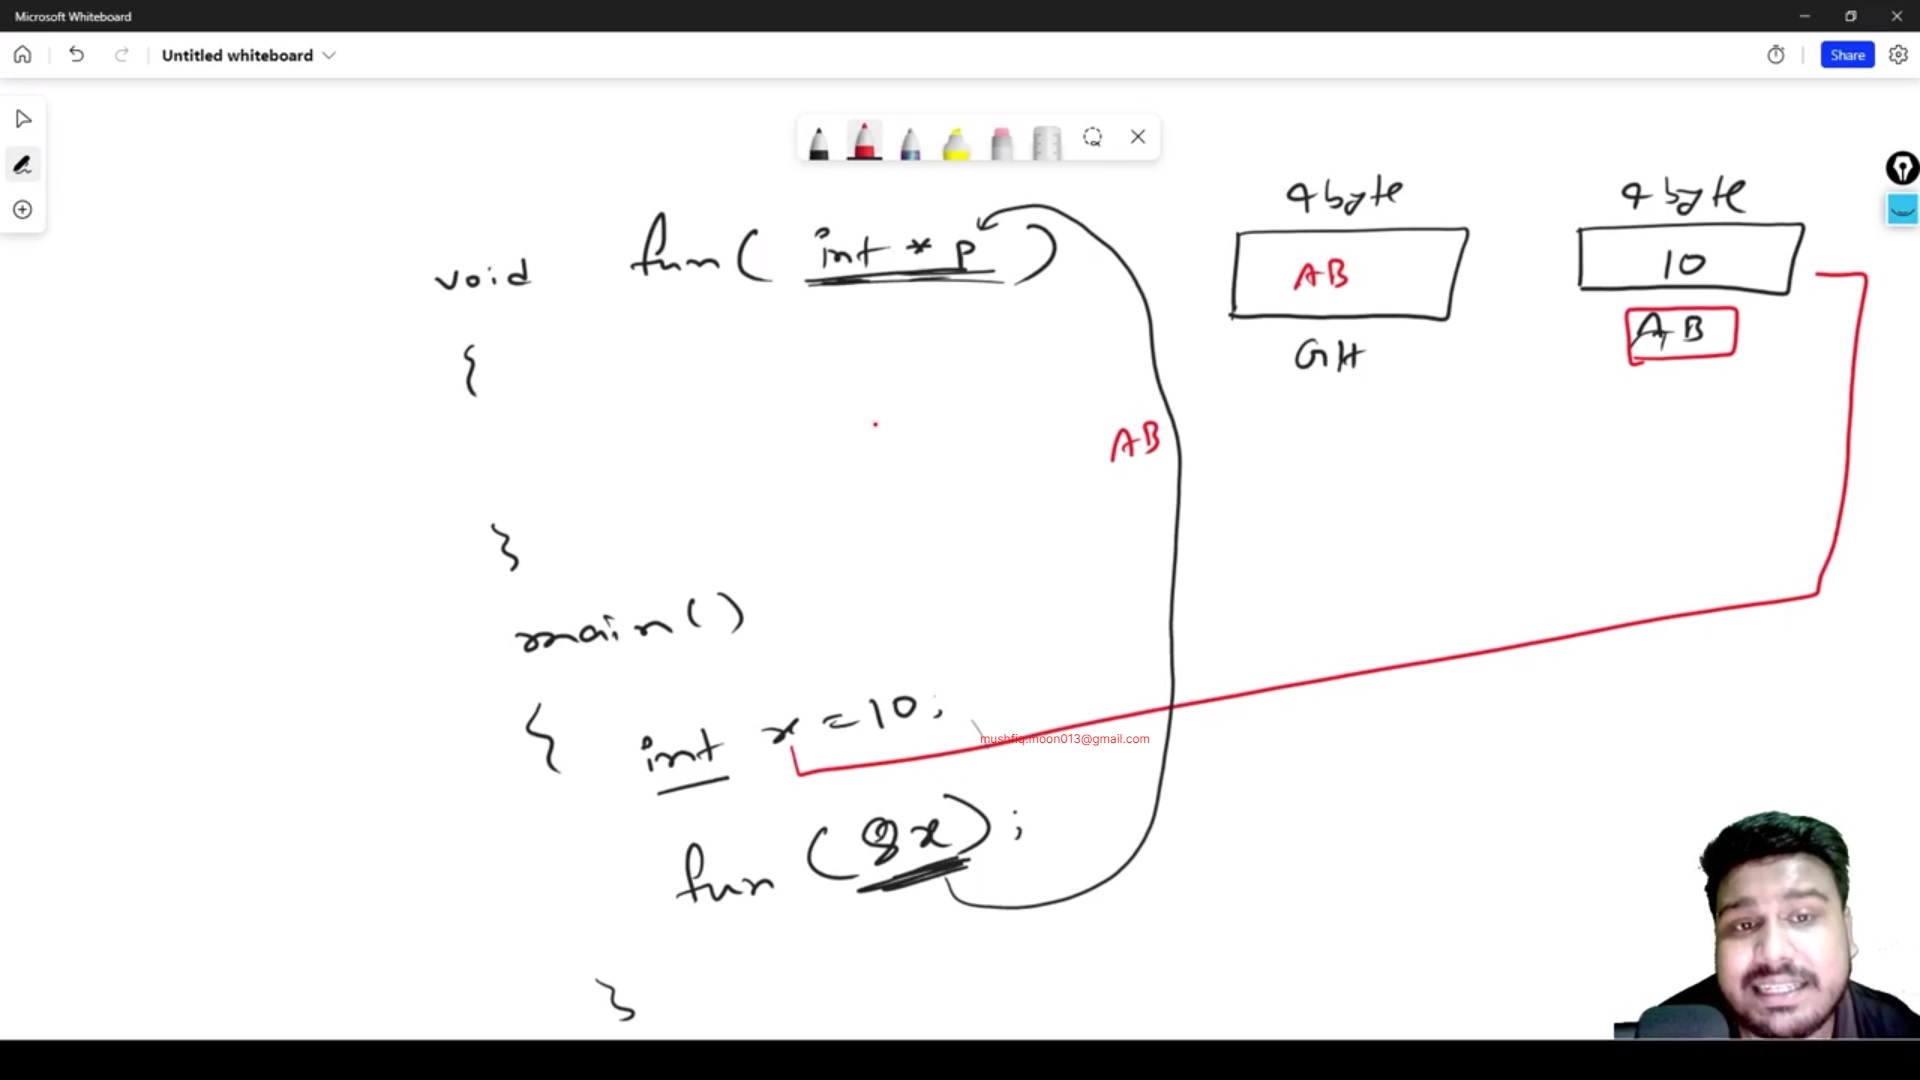 Microsoft Whiteboard
Untitled whiteboard
Share
void fun( int * p )
{
}
main()
{ int x = 10;
fun (&x);
}
AB
4 byte
AB
GH
4 byte
10
AB
mushfiq.moon013@gmail.com